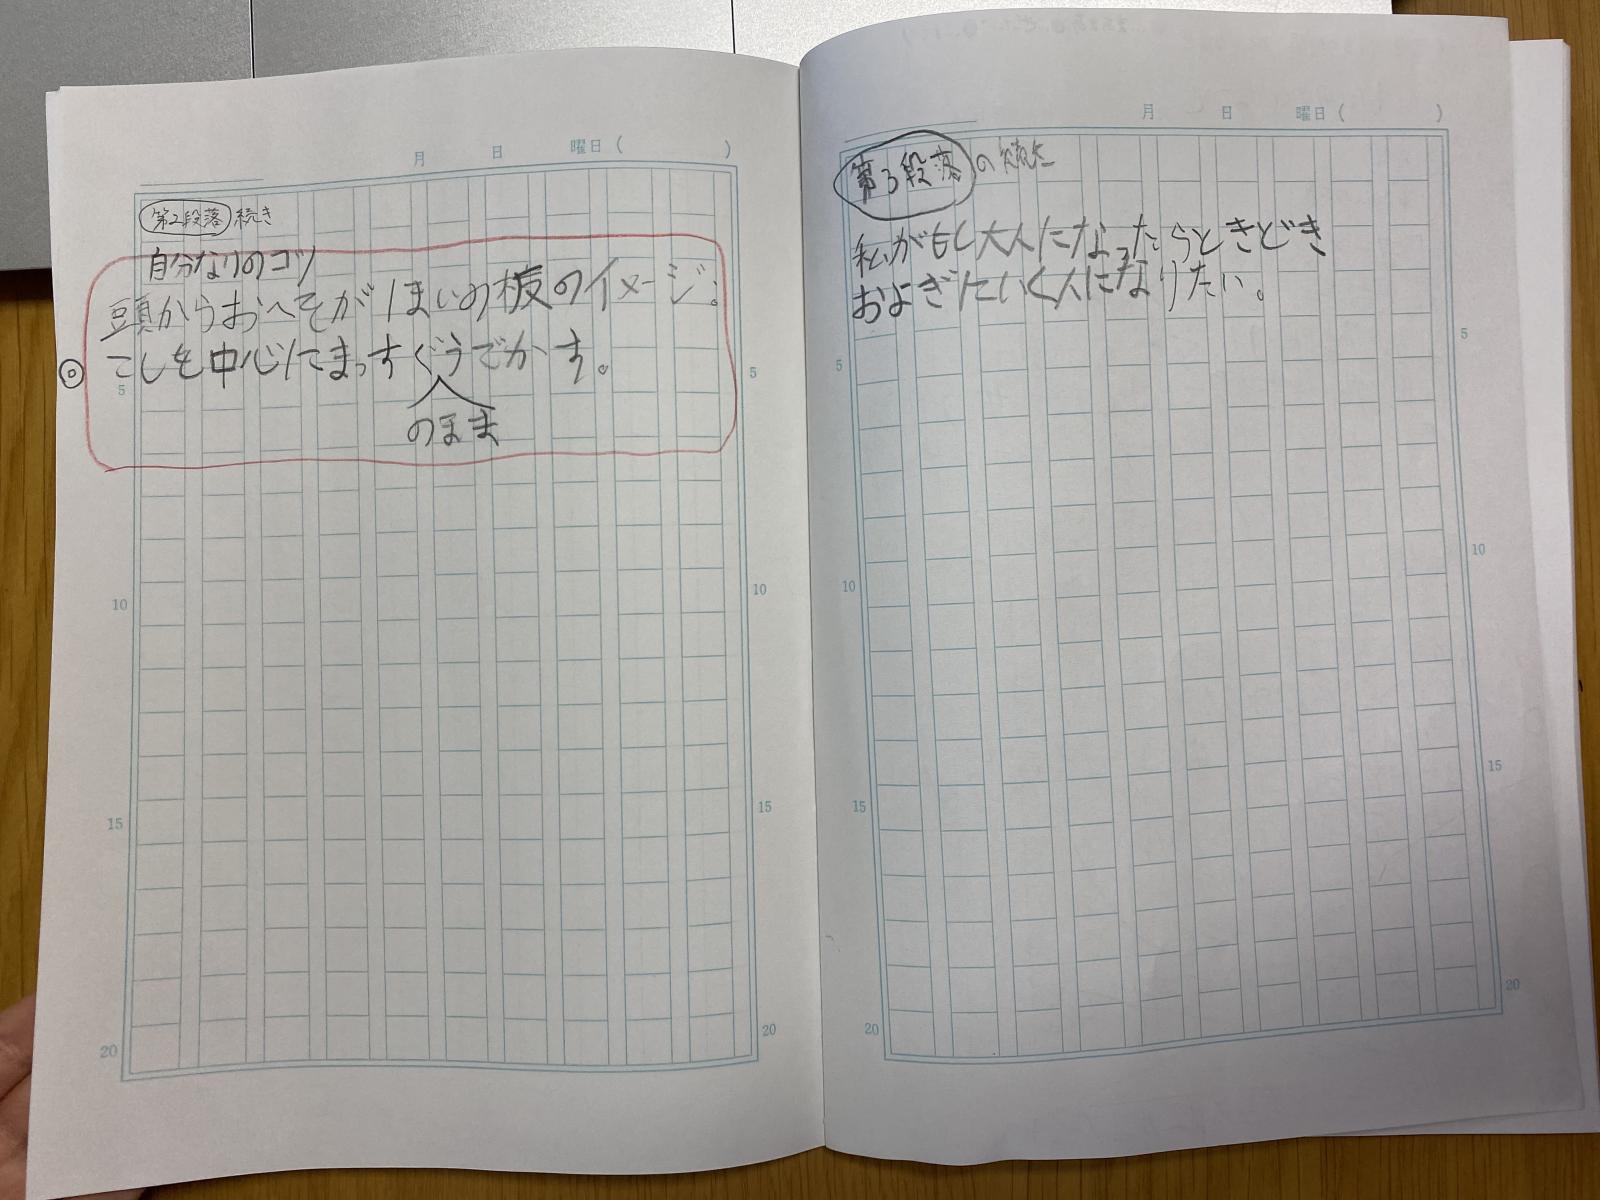 月 日 曜日 ( )
第2段落 続き
自分なりのコツ
頭からおへそが1まいの板のイメージ。
こしを中心にまっすぐうでかす。
のまま
5
10
15
20
5
10
15
20
月 日 曜日 ( )
第3段落の続き
私がもし大人になったらときどき
およぎにいく人になりたい。
5
10
15
20
5
10
15
20